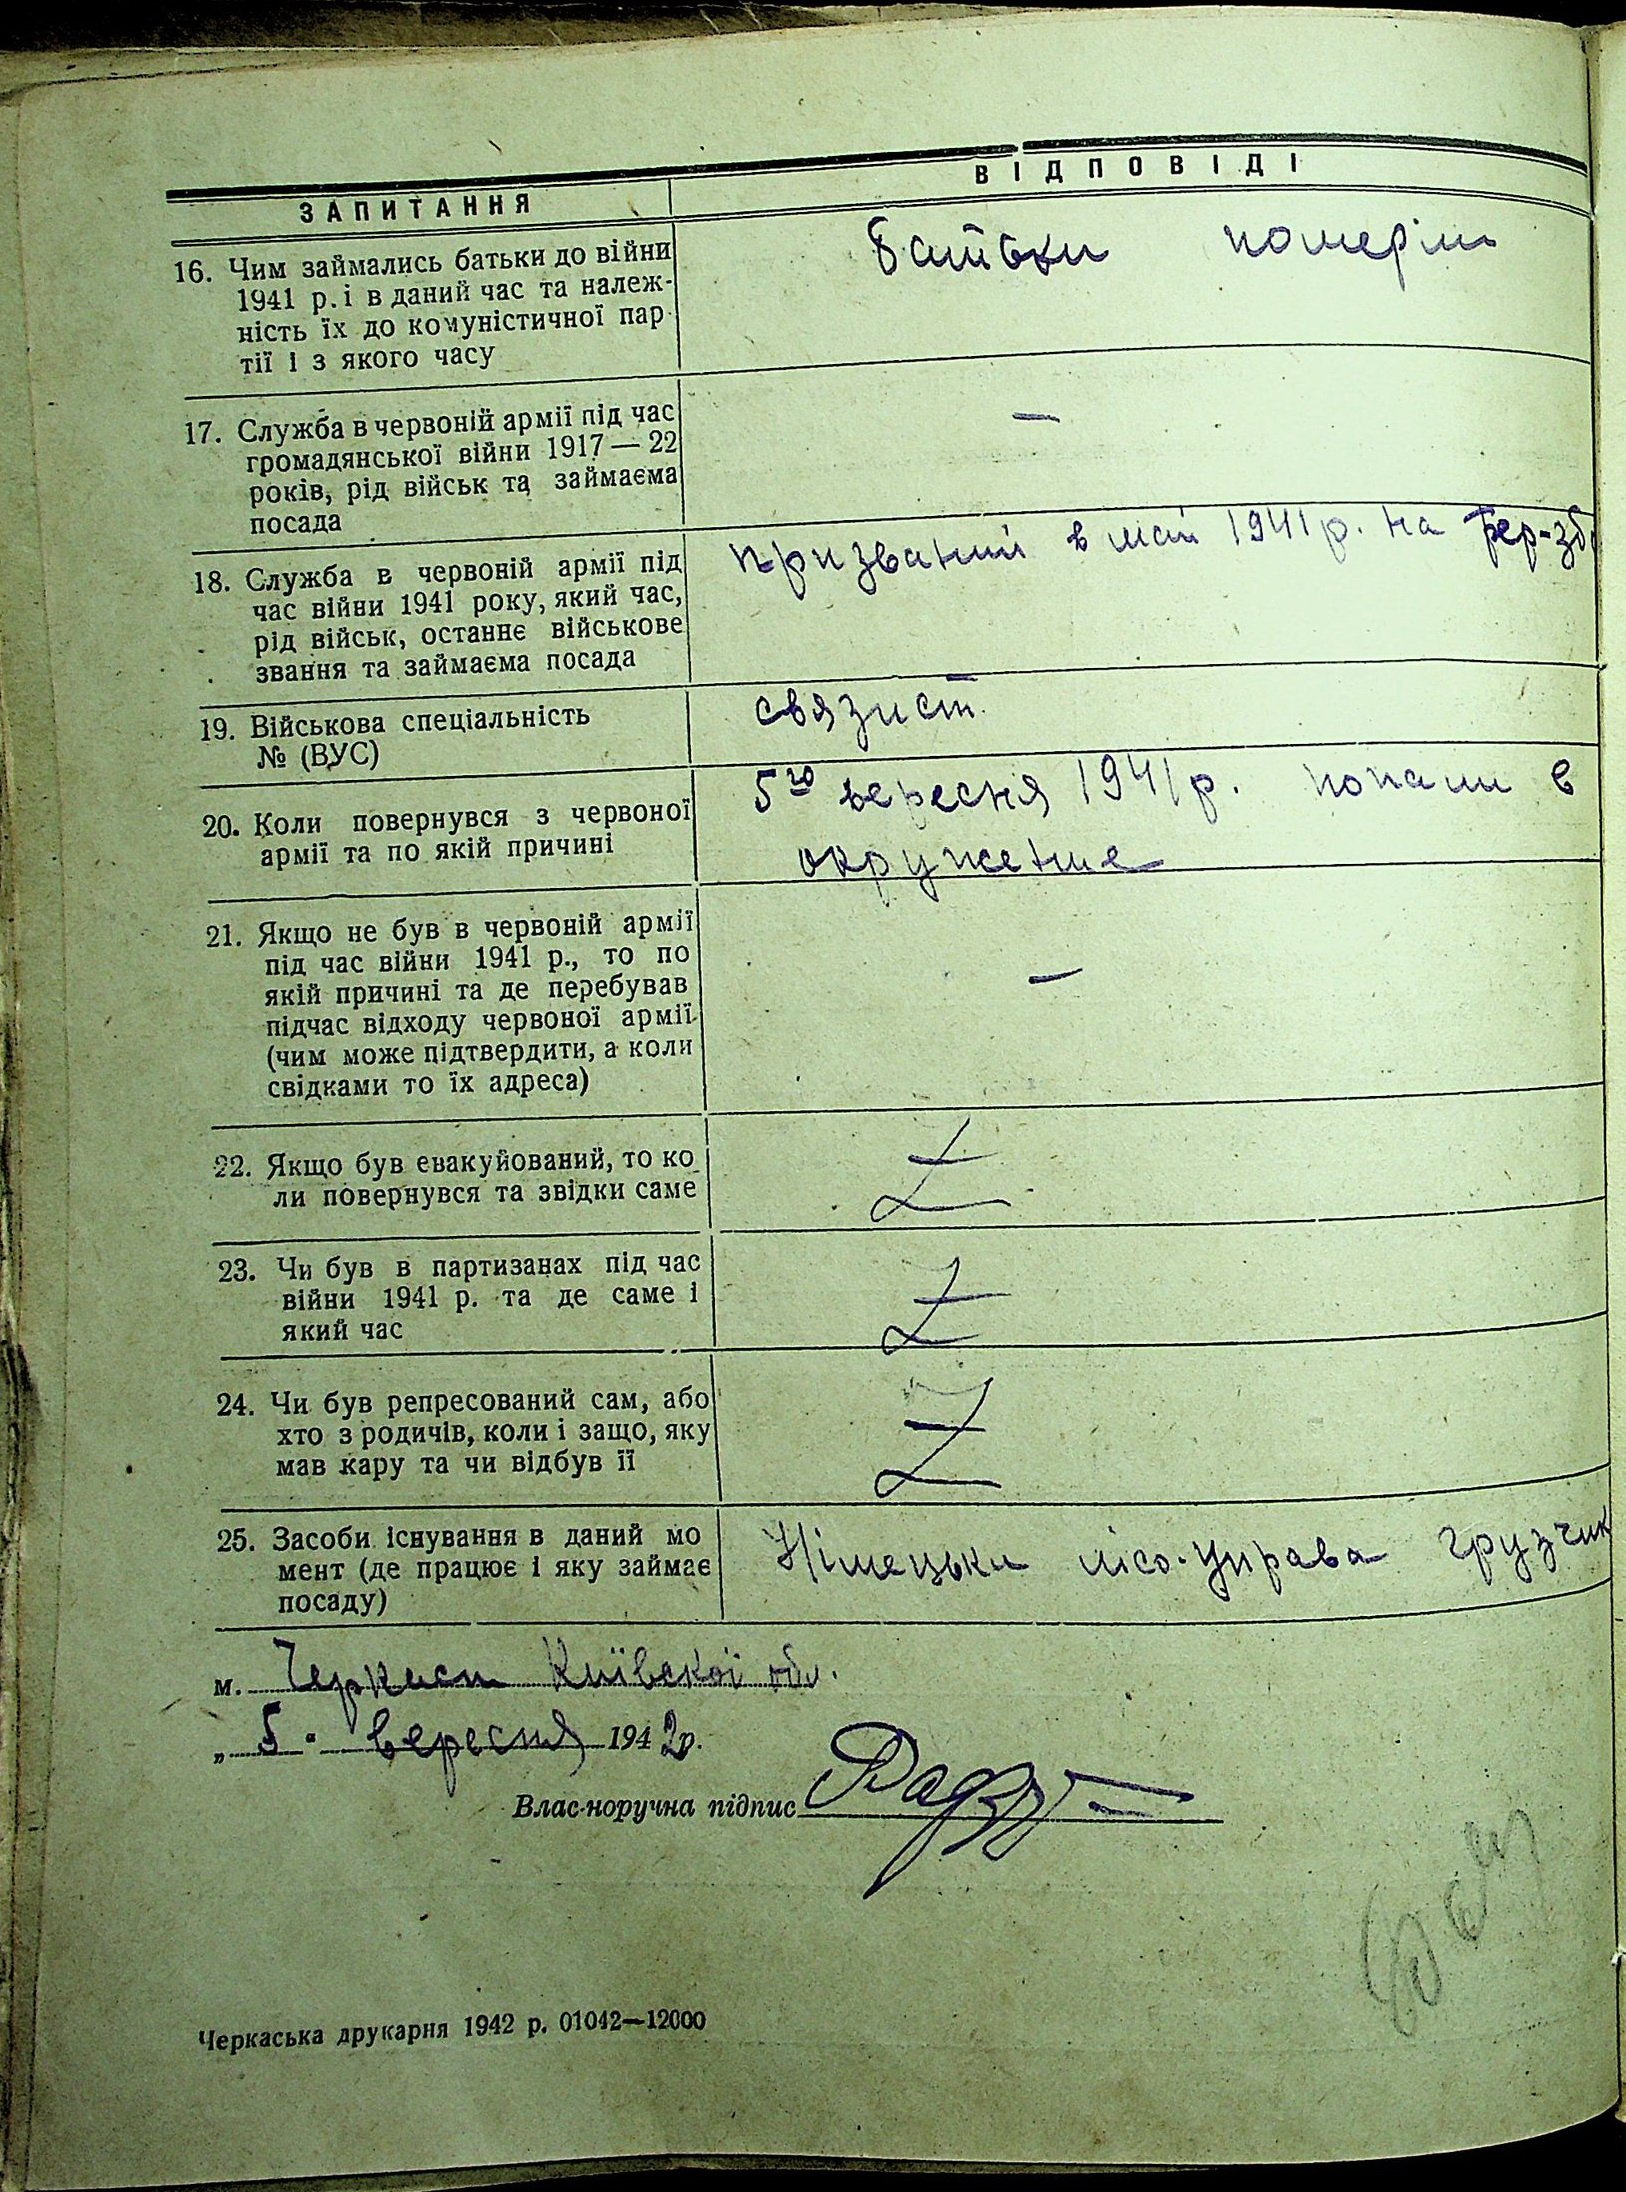 ЗАПИТАННЯ
ВІДПОВІДІ
16. Чим займались батьки до війни
1941 р. і в даний час та належ-
ність їх до комуністичної пар-
тії і з якого часу
Батьки померли
17. Служба в червоній армії під час
громадянської війни 1917 — 22
років, рід військ та займаєма
посада
—
18. Служба в червоній армії під
час війни 1941 року, який час,
рід військ, останнє військове
звання та займаєма посада
призваний в май 1941 р. на тер-зб
19. Військова спеціальність
№ (ВУС)
связист
20. Коли повернувся з червоної
армії та по якій причині
5го вересня 1941 р. попали в
окружение
21. Якщо не був в червоній армії
під час війни 1941 р., то по
якій причині та де перебував
підчас відходу червоної армії
(чим може підтвердити, а коли
свідками то їх адреса)
—
22. Якщо був евакуйований, то ко
ли повернувся та звідки саме
Z
23. Чи був в партизанах під час
війни 1941 р. та де саме і
який час
Z
24. Чи був репресований сам, або
хто з родичів, коли і защо, яку
мав кару та чи відбув її
Z
25. Засоби існування в даний мо
мент (де працює і яку займає
посаду)
Німецьки лісо-управа грузчик
м. Черкаси Київскої обл.
„ 5 " вересня 1942 р.
Влас-норучна підпис
Черкаська друкарня 1942 р. 01042—12000